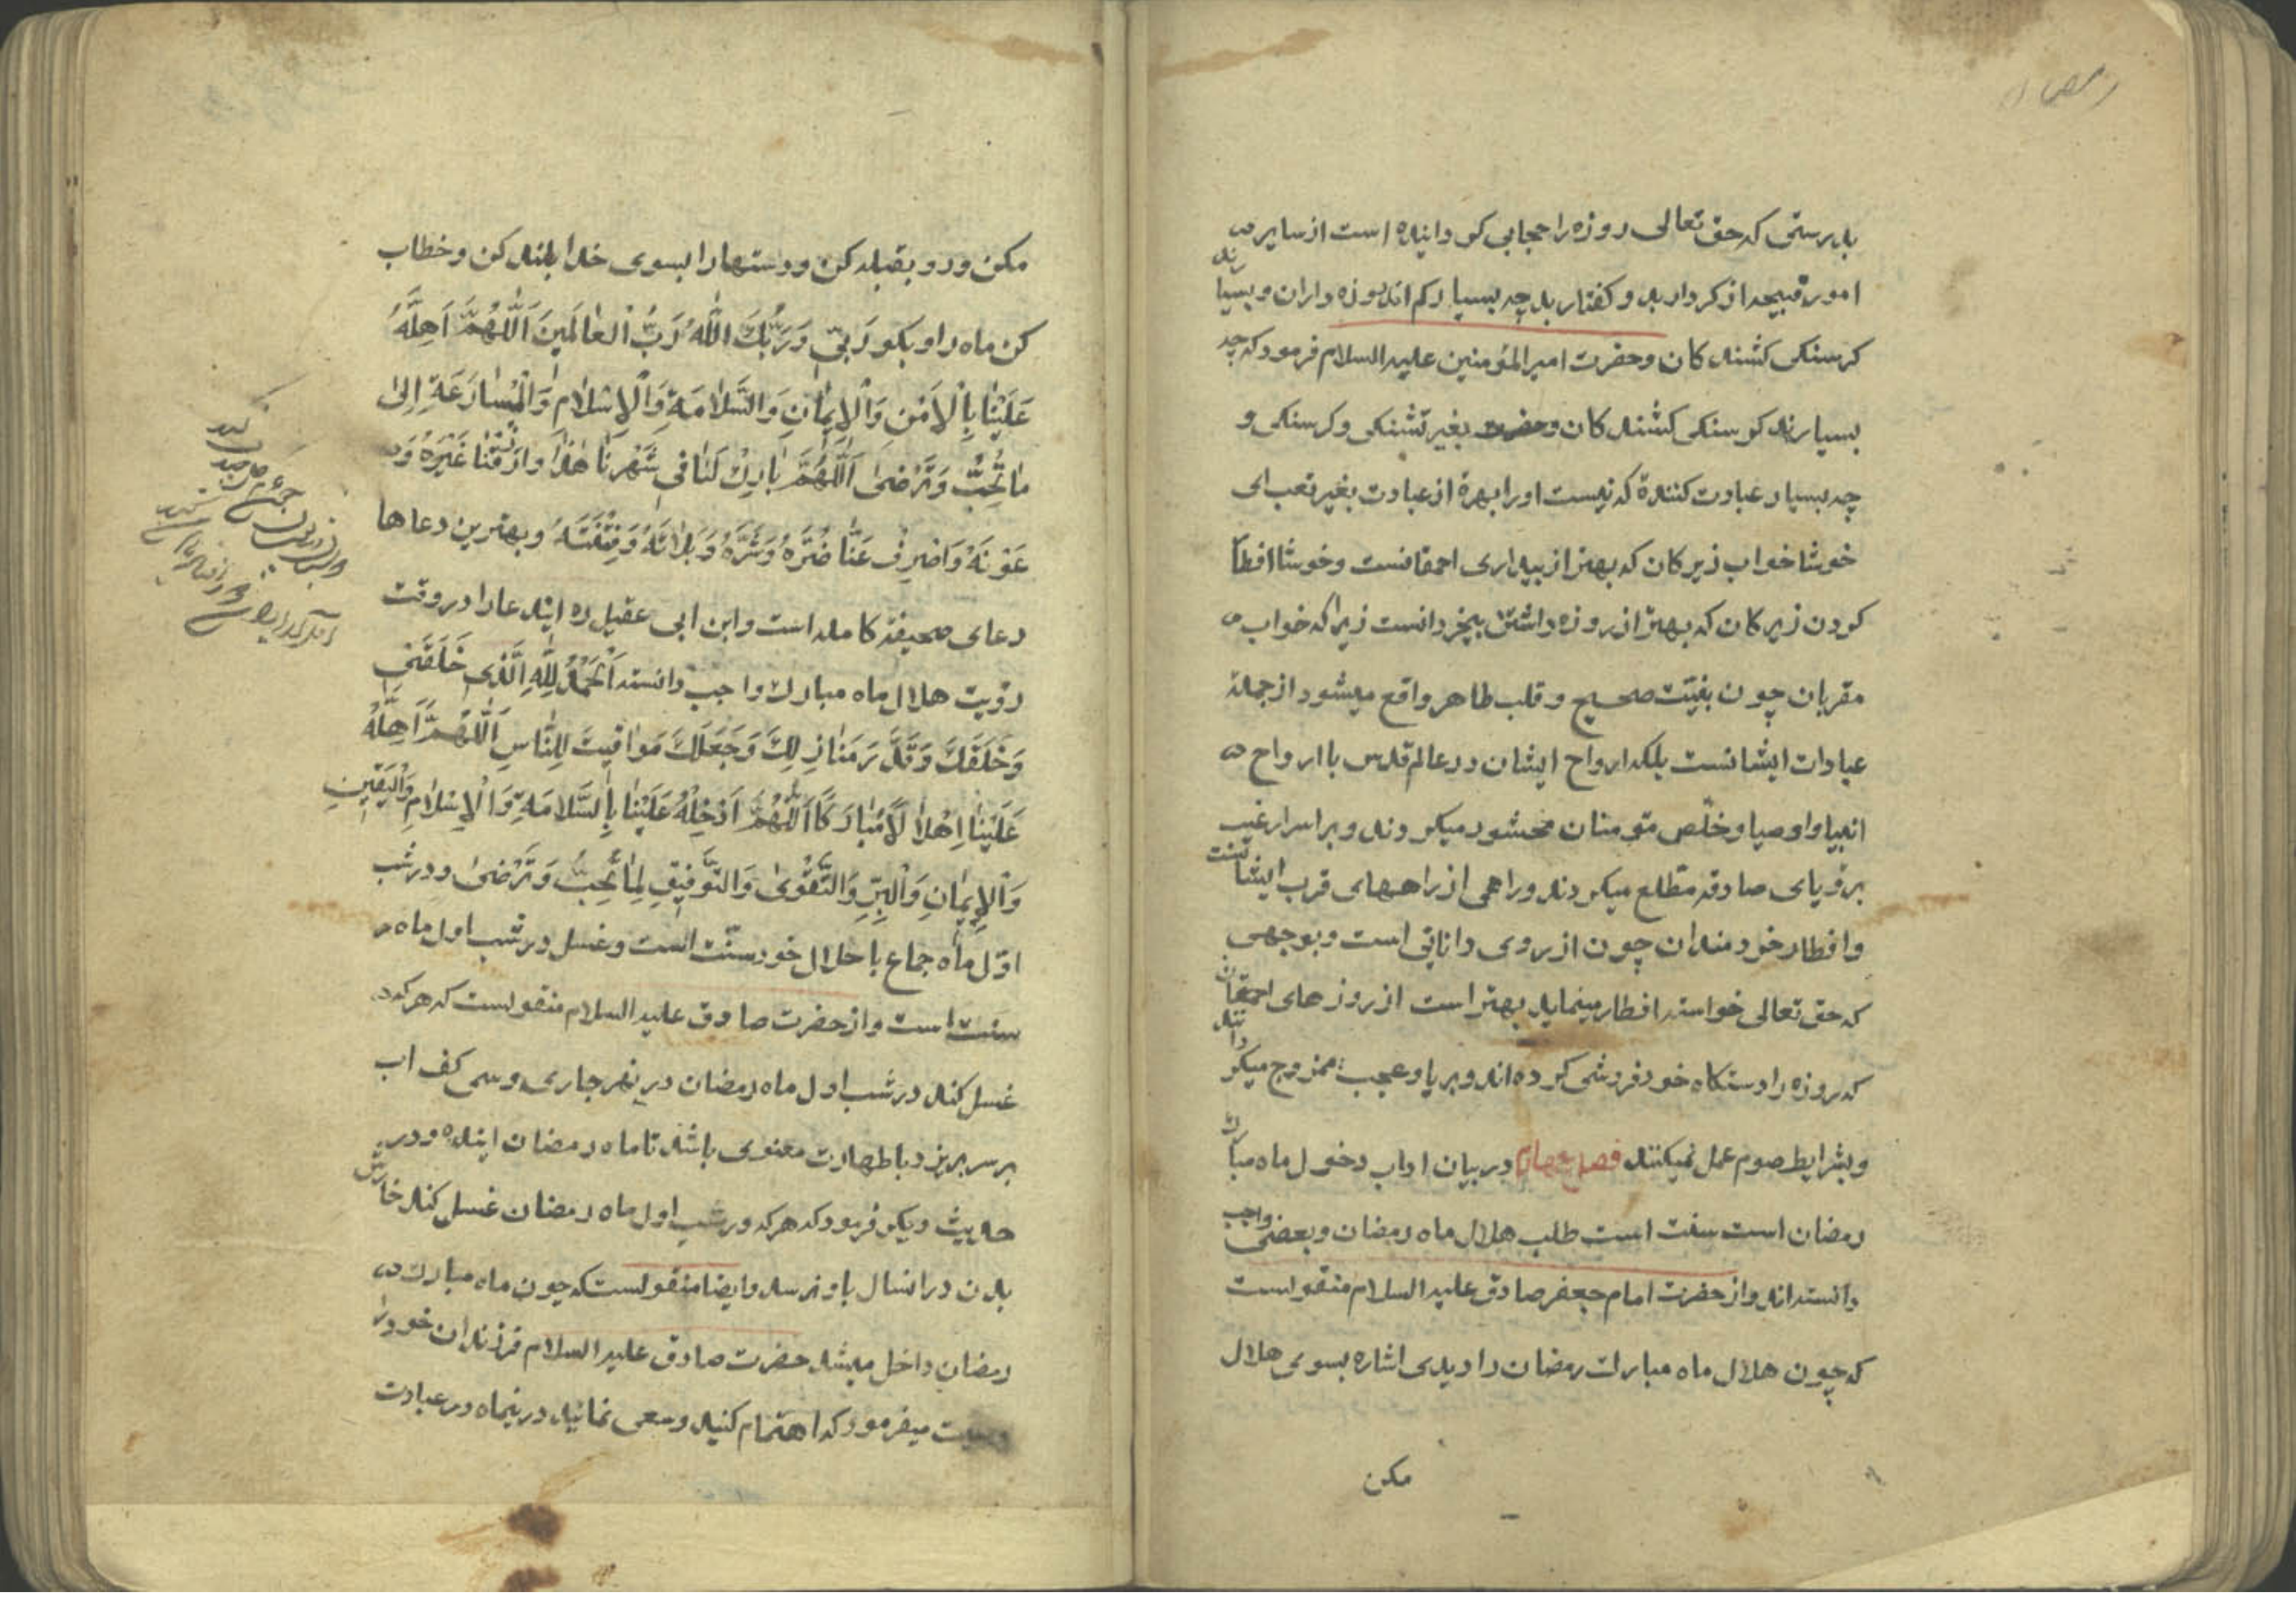 رمضان
بدرستی که حق تعالی روزه را حجابی کردانیده است از سایر
امور قبیحه از کردار بد و کفتار بد چه بسیار کم اند روزه داران و بسیارند
کرسنکی کشندکان و حضرت امیر المؤمنین علیه السلام فرمود که چه
بسیارند کرسنکی کشندکان و حضرت بغیر تشنکی و کرسنکی و
چه بسیار عبادت کنندهٔ که نیست او را بهرهٔ از عبادت بغیر تعب ای
خوشا خواب زیرکان که بهتر از بیداری احمقانست و خوشا افطا
کردن زیرکان که بهتر از روزه داشتن بیخردانست زیرا که خواب
مقربان چون بنیّت صحیح و قلب طاهر واقع میشود از جملهٔ
عبادات ایشانست بلکه ارواح ایشان در عالم قدس با ارواح
انبیا و اوصیا و خلّص مؤمنان محشور میکردند و بر اسرار غیب
برؤیای صادقه مطلع میکردند و راهی از راههای قرب ایشانست
و افطار خردمندان چون از روی دانائی است و بوجهی
که حق تعالی خواسته افطار مینماید بهتر است از روزهای احمقان
که روزه را دستکاه خود فروشی کرده اند و بریا و عجب ممزوج میکردانند
و بشرایط صوم عمل نمیکنند فصل چهارم در بیان اداب دخول ماه مبارک
رمضان است سنت است طلب هلال ماه رمضان و بعضی واجب
دانسته اند و از حضرت امام جعفر صادق علیه السلام منقولست
که چون هلال ماه مبارک رمضان را دیدی اشاره بسوی هلال
مکن
مکن و رو بقبله کن و دستها را بسوی خدا بلند کن و خطاب
کن ماه را و بکو رَبّی وَرَبُّكَ اللّٰهُ رَبُّ الْعٰالَمینَ اَللّٰهُمَّ اَهِلَّهُ
عَلَیْنٰا بِالْاَمْنِ وَالْاِیمٰانِ وَالسَّلٰامَةِ وَالْاِسْلٰامِ وَالْمُسٰارَعَةِ اِلیٰ
مٰا تُحِبُّ وَتَرْضیٰ اَللّٰهُمَّ بٰارِكْ لَنٰا فی شَهْرِنٰا هٰذٰا وَارْزُقْنٰا خَیْرَهُ وَ
عَوْنَهُ وَاصْرِفْ عَنّٰا ضُرَّهُ وَشَرَّهُ وَبَلٰائَهُ وَفِتْنَتَهُ و بهترین دعاها
دعای صحیفهٔ کامله است و ابن ابی عقیل ره ایندعا را در وقت
رؤیت هلال ماه مبارک واجب دانسته اَلْحَمْدُ لِلّٰهِ الَّذی خَلَقَنی
وَخَلَقَكَ وَقَدَّرَ مَنٰازِلَكَ وَجَعَلَكَ مَوٰاقیتَ لِلنّٰاسِ اَللّٰهُمَّ اَهِلَّهُ
عَلَیْنٰا اِهْلٰالًا مُبٰارَكًا اَللّٰهُمَّ اَدْخِلْهُ عَلَیْنٰا بِالسَّلٰامَةِ وَالْاِسْلٰامِ وَالْیَقینِ
وَالْاِیمٰانِ وَالْبِرِّ وَالتَّقْویٰ وَالتَّوْفیقِ لِمٰا تُحِبُّ وَتَرْضیٰ و در شب
اوّل ماه جماع با حلال خود سنّت است و غسل در شب اول ماه
سنت است و از حضرت صادق علیه السلام منقولست که هر که
غسل کند در شب اول ماه رمضان در نهر جاری و سی کف اب
بر سر بریزد با طهارت معنوی باشد تا ماه رمضان اینده و در
حدیث دیکر فرمود که هر که در شب اول ماه رمضان غسل کند خارش
بدن در انسال باو نرسد و ایضا منقولست که چون ماه مبارک
رمضان داخل میشد حضرت صادق علیه السلام فرزندان خود را
وصیت میفرمود که اهتمام کنید و سعی نمائید در نیماه در عبادت